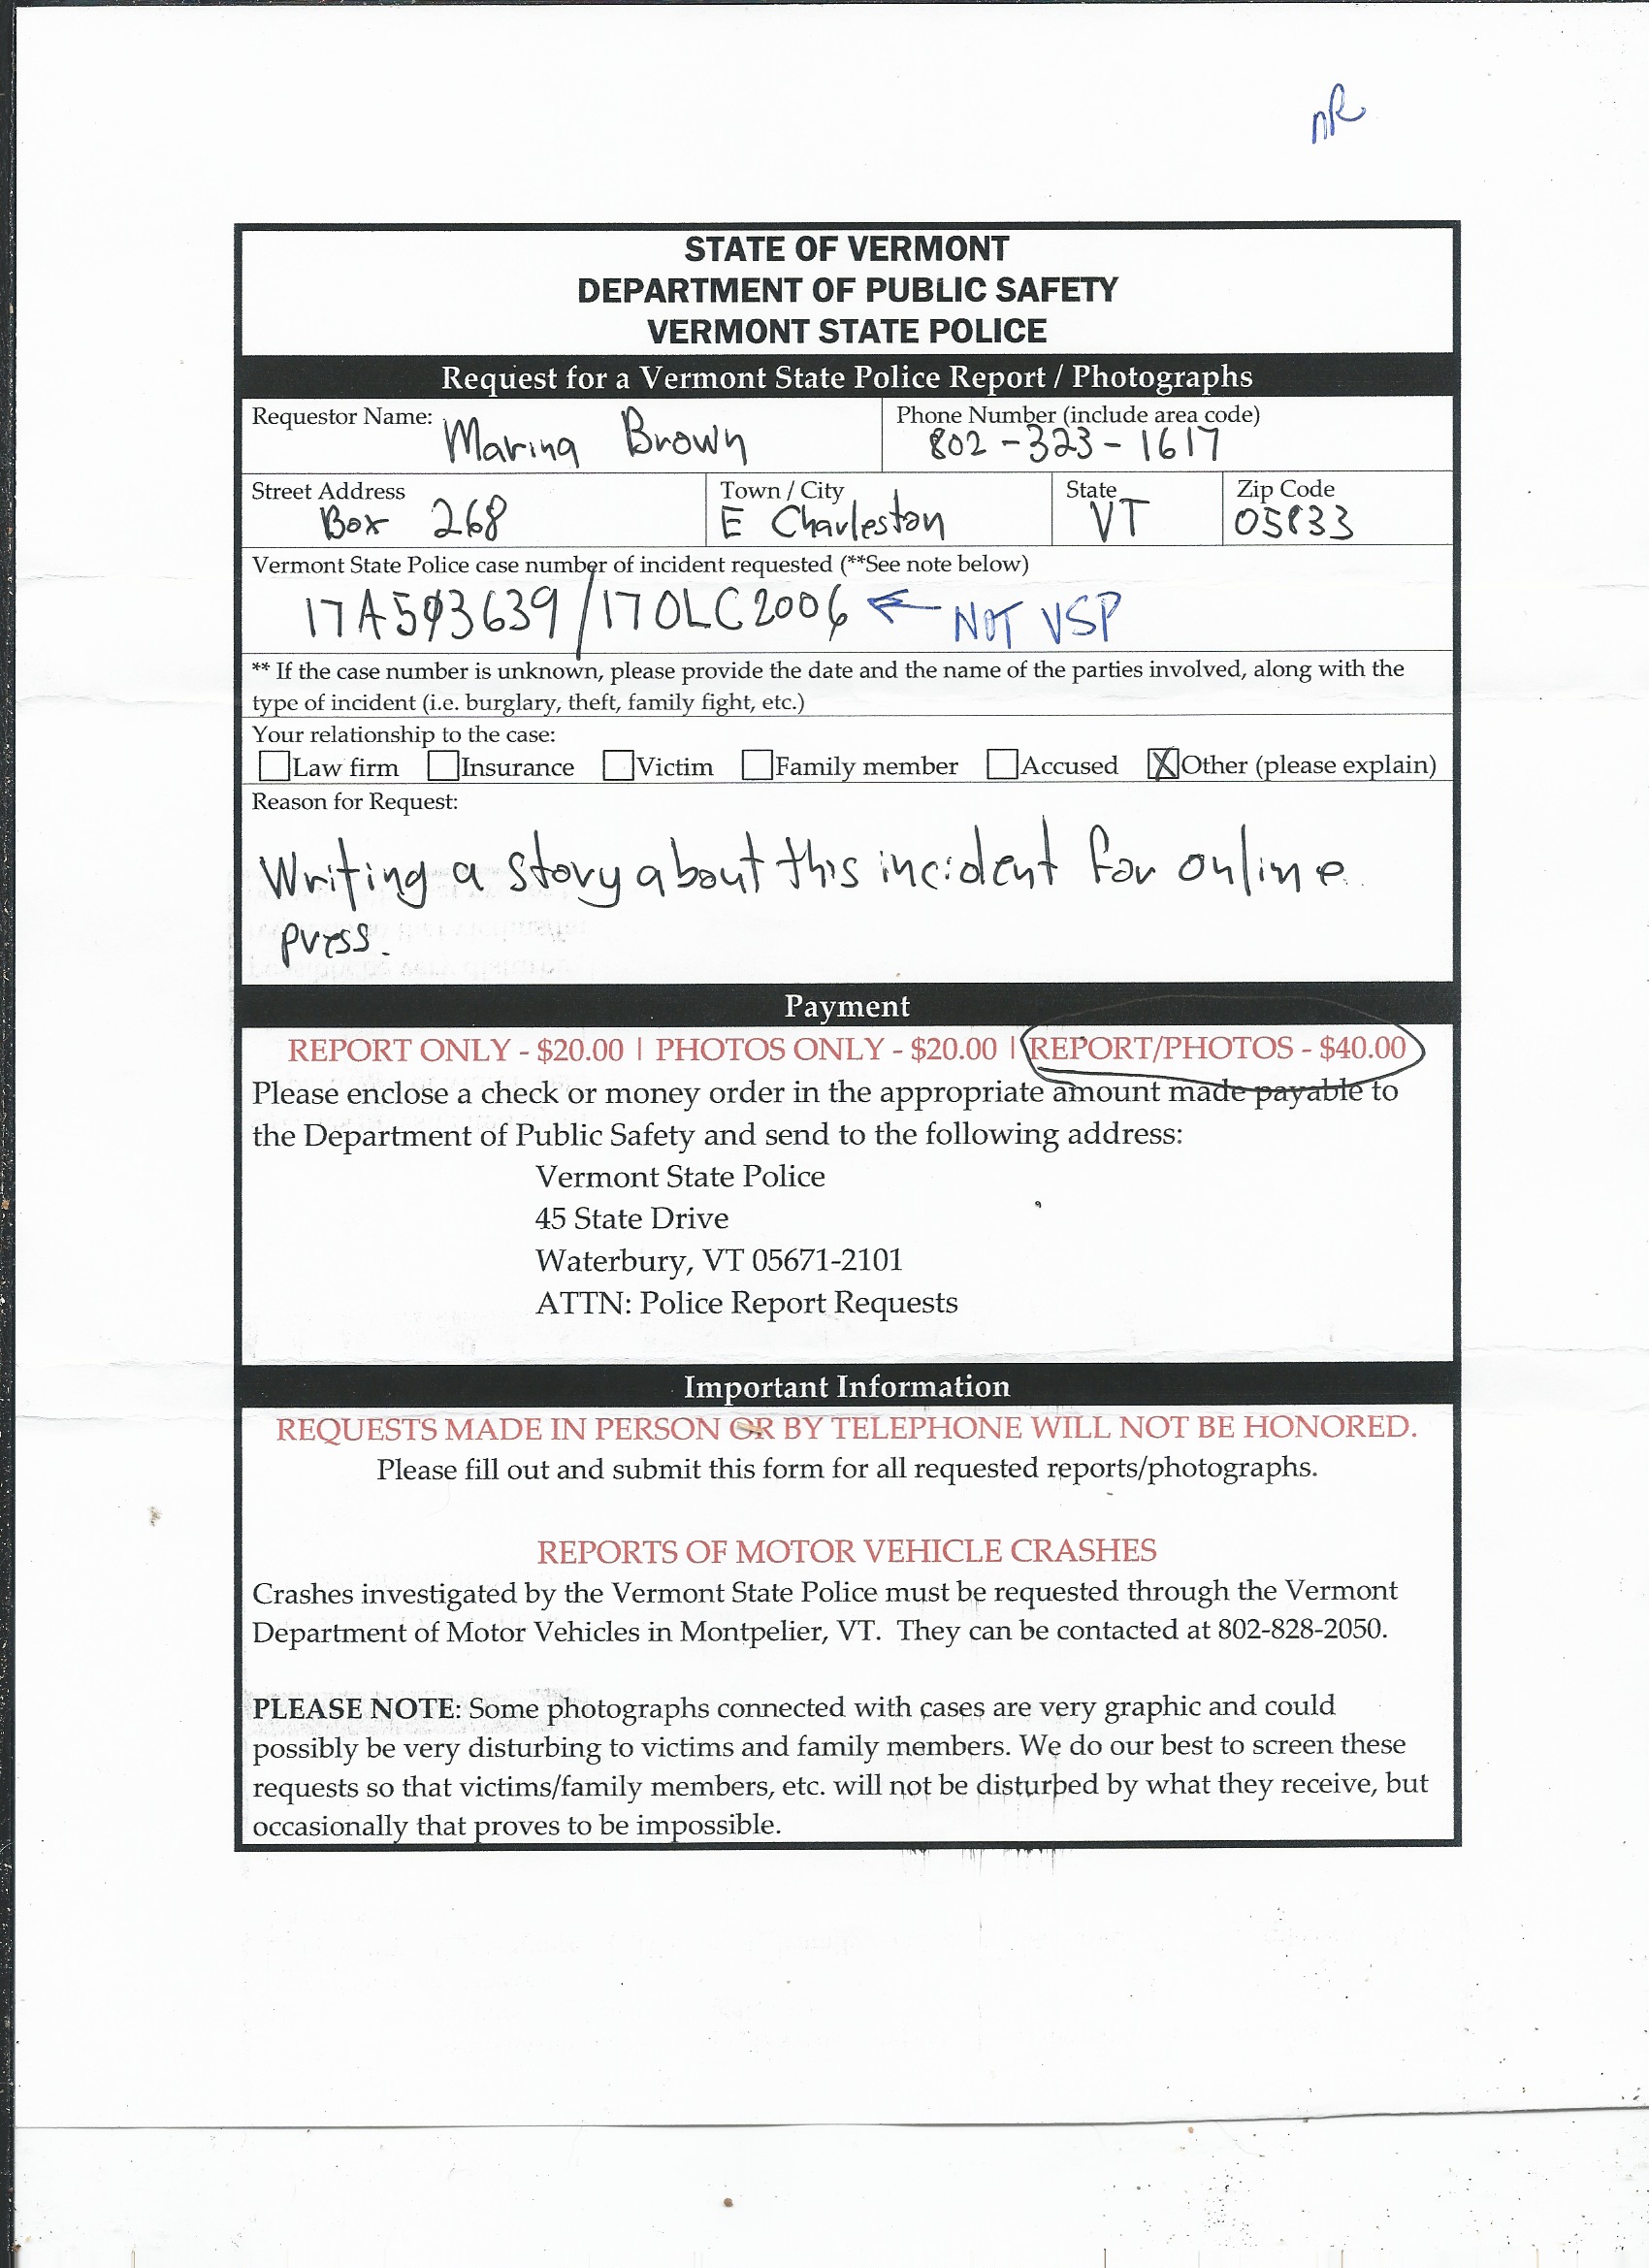 nR
STATE OF VERMONT
DEPARTMENT OF PUBLIC SAFETY
VERMONT STATE POLICE
Request for a Vermont State Police Report / Photographs
Requestor Name: Marina Brown Phone Number (include area code) 802-323-1617
Street Address Box 268 Town / City E Charleston State VT Zip Code 05833
Vermont State Police case number of incident requested (**See note below)
17A503639/17OLC2006 ← NOT VSP
** If the case number is unknown, please provide the date and the name of the parties involved, along with the
type of incident (i.e. burglary, theft, family fight, etc.)
Your relationship to the case:
☐Law firm ☐Insurance ☐Victim ☐Family member ☐Accused ☒Other (please explain)
Reason for Request:
Writing a story about this incident for online
press.
Payment
REPORT ONLY - $20.00 | PHOTOS ONLY - $20.00 | REPORT/PHOTOS - $40.00
Please enclose a check or money order in the appropriate amount made payable to
the Department of Public Safety and send to the following address:
Vermont State Police
45 State Drive
Waterbury, VT 05671-2101
ATTN: Police Report Requests
Important Information
REQUESTS MADE IN PERSON OR BY TELEPHONE WILL NOT BE HONORED.
Please fill out and submit this form for all requested reports/photographs.
REPORTS OF MOTOR VEHICLE CRASHES
Crashes investigated by the Vermont State Police must be requested through the Vermont
Department of Motor Vehicles in Montpelier, VT. They can be contacted at 802-828-2050.
PLEASE NOTE: Some photographs connected with cases are very graphic and could
possibly be very disturbing to victims and family members. We do our best to screen these
requests so that victims/family members, etc. will not be disturbed by what they receive, but
occasionally that proves to be impossible.